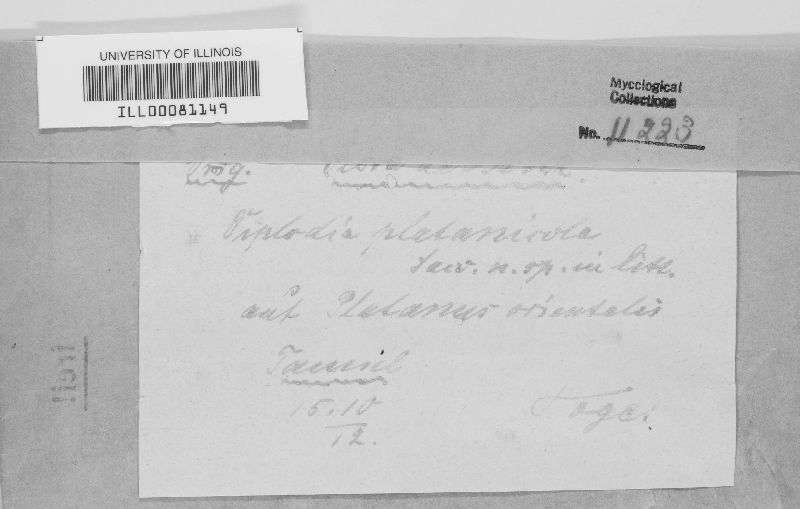 UNIVERSITY OF ILLINOIS
ILL00081149
Mycological
Collections
No. 11223
Orig.
Diplodia platanicola
Sacc. n. sp. in litt.
auf Platanus orientalis
Tamsel
15.10
12.